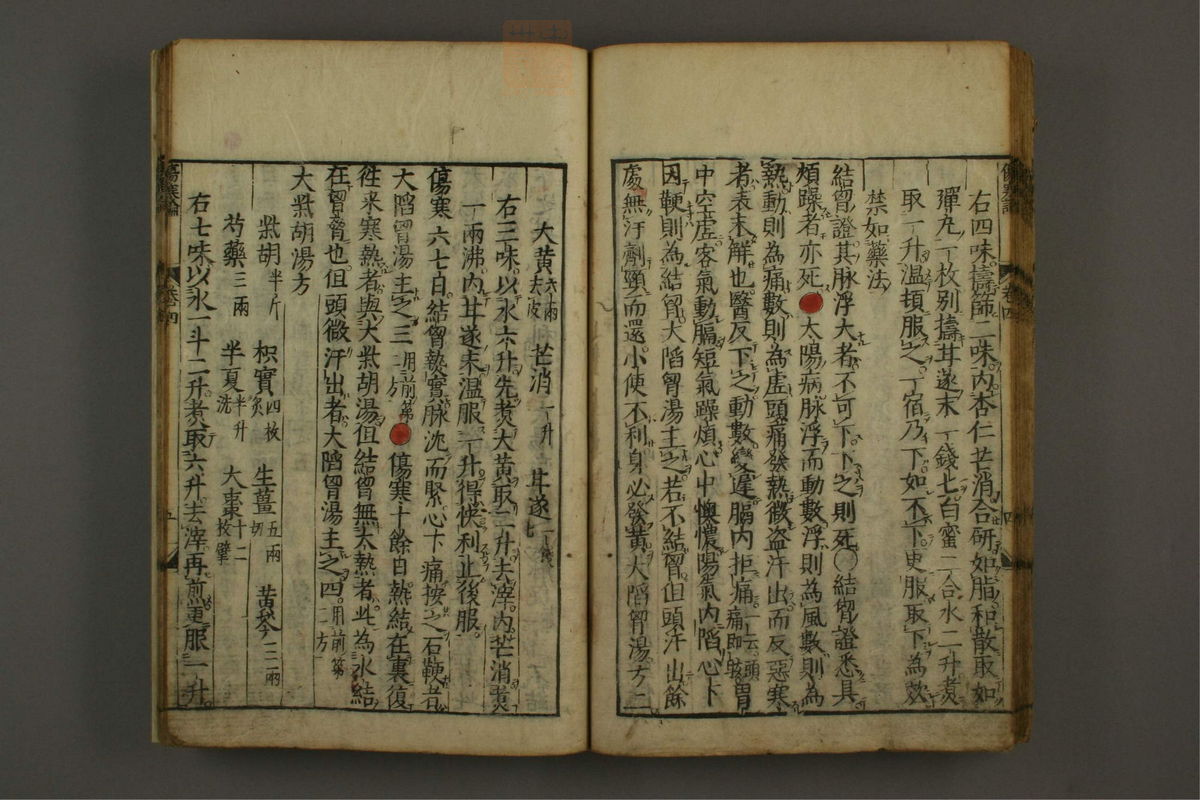 右四味擣篩二味内杏仁芒消合研如脂和散取如
彈丸一枚别擣甘遂末一錢匕白蜜二合水二升煮
取一升温頓服之一宿乃下如不下更服取下為效
禁如藥法
結胷證其脉浮大者不可下下之則死〇結胷證悉具
煩躁者亦死 太陽病脉浮而動數浮則為風數則為
熱動則為痛數則為虚頭痛發熱微盗汗出而反惡寒
者表未解也醫反下之動數變遲膈内拒痛一云頭痛即眩胃
中空虚客氣動膈短氣躁煩心中懊憹陽氣内陷心下
因鞕則為結胷大陷胷湯主之若不結胷但頭汗出餘
處無汗劑頸而還小便不利身必發黄大陷胷湯方二
大黄六兩去皮 芒消一升 甘遂一錢匕
右三味以水六升先煮大黄取二升去滓内芒消煮
一兩沸内甘遂末温服一升得快利止後服
傷寒六七日結胷熱實脉沈而緊心下痛按之石鞕者
大陷胷湯主之三用前第二方 傷寒十餘日熱結在裏復
徃来寒熱者與大柴胡湯但結胷無大熱者此為水結
在胷脅也但頭微汗出者大陷胷湯主之四用前第二方
大柴胡湯方
柴胡半斤 枳實四枚炙 生薑五兩切 黄芩三兩
芍藥三兩 半夏半升洗 大棗十二枚擘
右七味以水一斗二升煮取六升去滓再煎温服一升
傷寒論
卷四
四
傷寒論
卷四
五